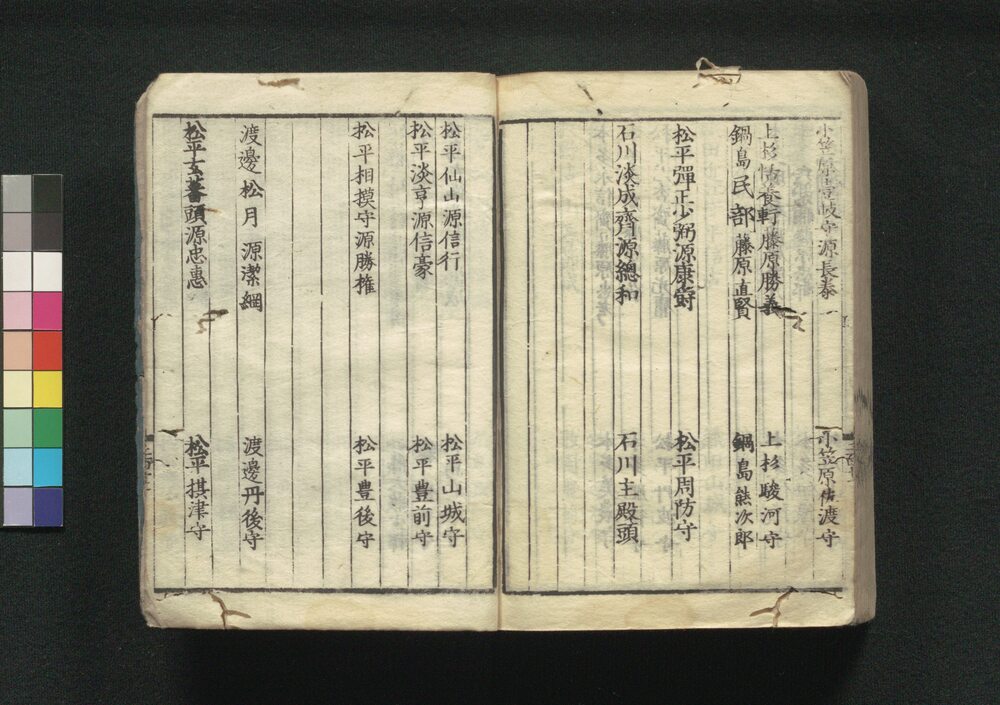 小笠原壹岐守源長泰 小笠原佐渡守
上杉 養軒藤原勝義 上杉駿河守
鍋島民部藤原直賢 鍋島熊次郎
松平彈正少弼源康爵 松平周防守
石川淡成齊源總和 石川主殿頭
松平仙山源信行 松平山城守
松平淡亨源信豪 松平豊前守
松平相摸守源勝權 松平豊後守
渡邊松月源潔綱 渡邊丹後守
松平玄蕃頭源忠惠 松平摂津守